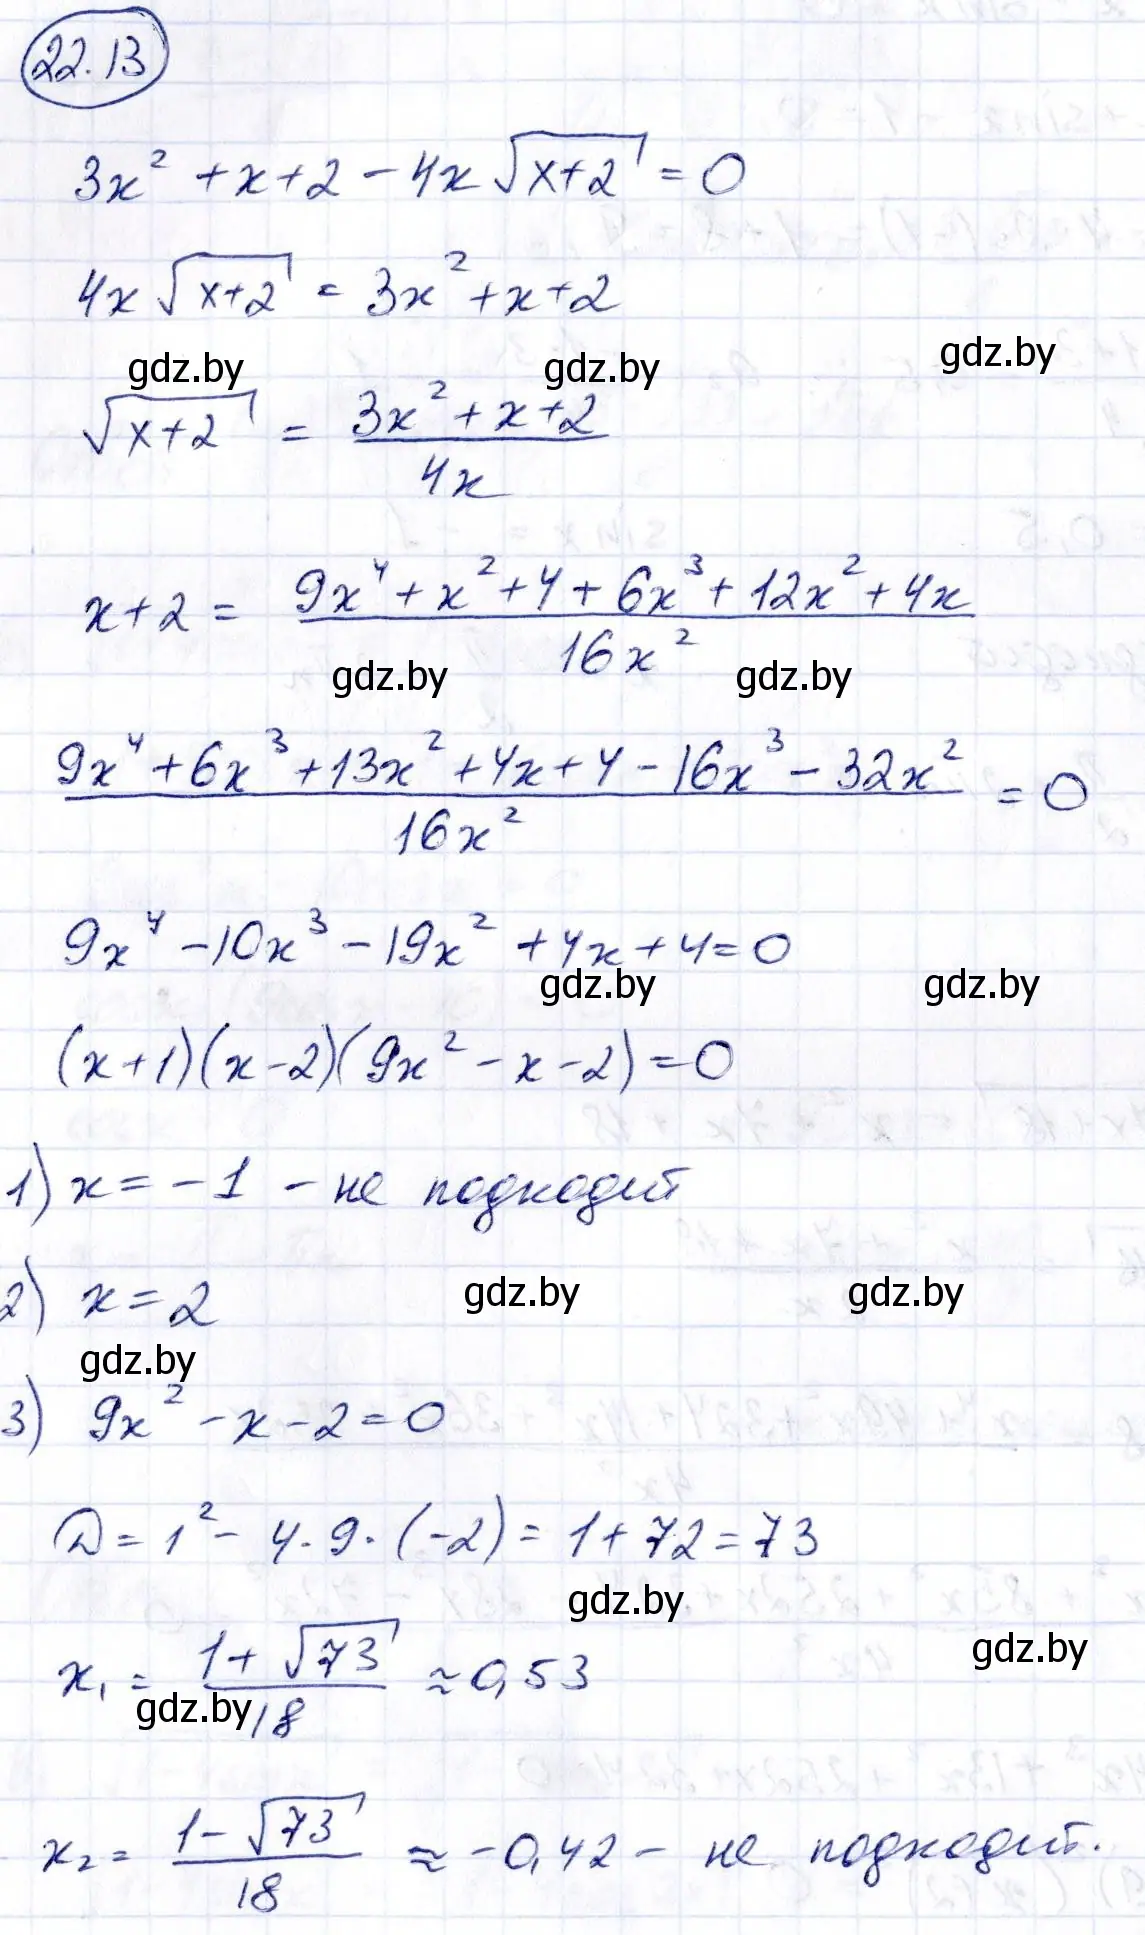 22.13
3x² + x + 2 - 4x √(x+2) = 0
4x √(x+2) = 3x² + x + 2
gdz.by gdz.by gdz.by
√(x+2) = (3x² + x + 2) / 4x
x + 2 = (9x⁴ + x² + 4 + 6x³ + 12x² + 4x) / 16x²
gdz.by gdz.by
(9x⁴ + 6x³ + 13x² + 4x + 4 - 16x³ - 32x²) / 16x² = 0
9x⁴ - 10x³ - 19x² + 4x + 4 = 0
gdz.by gdz.by
(x+1)(x-2)(9x² - x - 2) = 0
1) x = -1 - не подходит
2) x = 2
gdz.by gdz.by
gdz.by
3) 9x² - x - 2 = 0
D = 1² - 4·9·(-2) = 1 + 72 = 73
gdz.by
gdz.by
x₁ = (1 + √73) / 18 ≈ 0,53
gdz.by
x₂ = (1 - √73) / 18 ≈ -0,42 - не подходит.